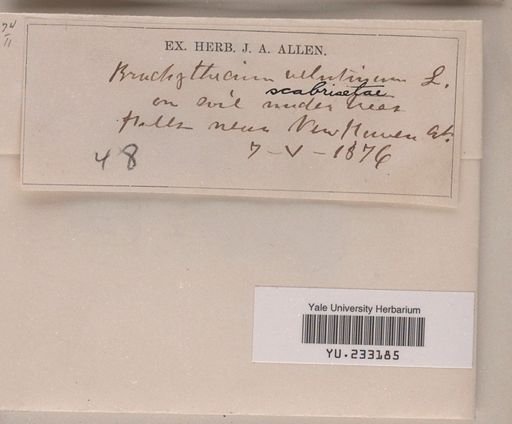 74
11
EX. HERB. J. A. ALLEN.
Brachythecium velutinum L.
scabrisetae
on soil under trees
Hills near New Haven Ct.
48 7-V-1876
Yale University Herbarium
YU.233185